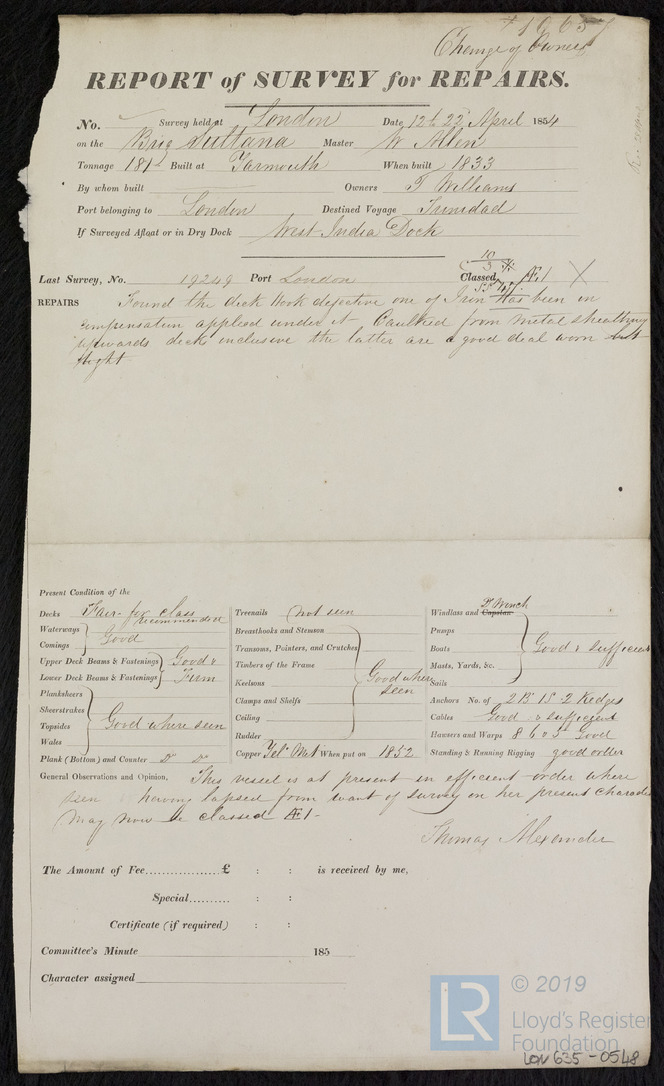 Change of Owners
REPORT of SURVEY for REPAIRS.
No. Survey held at London Date 12 & 22 April 1854
on the Brig Sultana Master W Allen
Tonnage 181 Built at Yarmouth When built 1833
By whom built Owners T Williams
Port belonging to London Destined Voyage Trinidad
If Surveyed Afloat or in Dry Dock West India Dock
Last Survey, No. 19249 Port London Classed Æ1
REPAIRS Found the deck Hook defective one of Iron Has been in
compensation applied under it Caulked from metal sheathing
upwards deck inclusive the latter are a good deal worn but
tight
Present Condition of the
Decks Fair for class
recommended
Waterways
Comings
Good
Upper Deck Beams & Fastenings
Lower Deck Beams & Fastenings
Good &
Firm
Planksheers
Sheerstrakes
Topsides
Wales
Good where seen
Plank (Bottom) and Counter Do Do
Treenails not seen
Breasthooks and Stemson
Transoms, Pointers, and Crutches
Timbers of the Frame
Keelsons
Clamps and Shelfs
Ceiling
Rudder
Good where
seen
Copper Yel Met When put on 1852
Windlass and Capstan Winch
Pumps
Boats
Masts, Yards, &c.
Sails
Good & sufficient
Anchors No. of 2B 1S 2 Kedges
Cables Good & sufficient
Hawsers and Warps 8 6 & 5 Good
Standing & Running Rigging good order
General Observations and Opinion, This vessel is at present in efficient order where
seen having lapsed from want of survey on her present character
may now be classed Æ1-
Thomas Alexander
The Amount of Fee................£ : : is received by me,
Special.......... : :
Certificate (if required) : :
Committee's Minute 185
Character assigned
LR © 2019
Lloyd's Register
Foundation
LON 635-0548